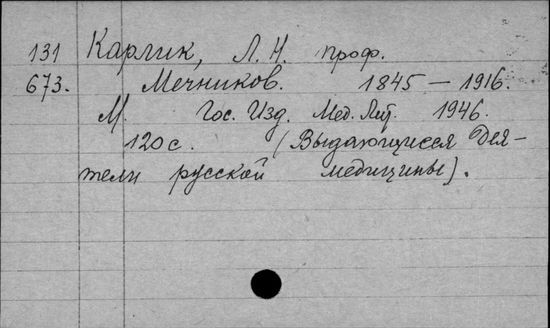 131 Карлик, Л. Н. проф.
673. Мечников. 1845 — 1916.
М. Гос. Изд. Мед. Лит. 1946.
120 с. (Выдающиеся Дея-
тели русской медицины).